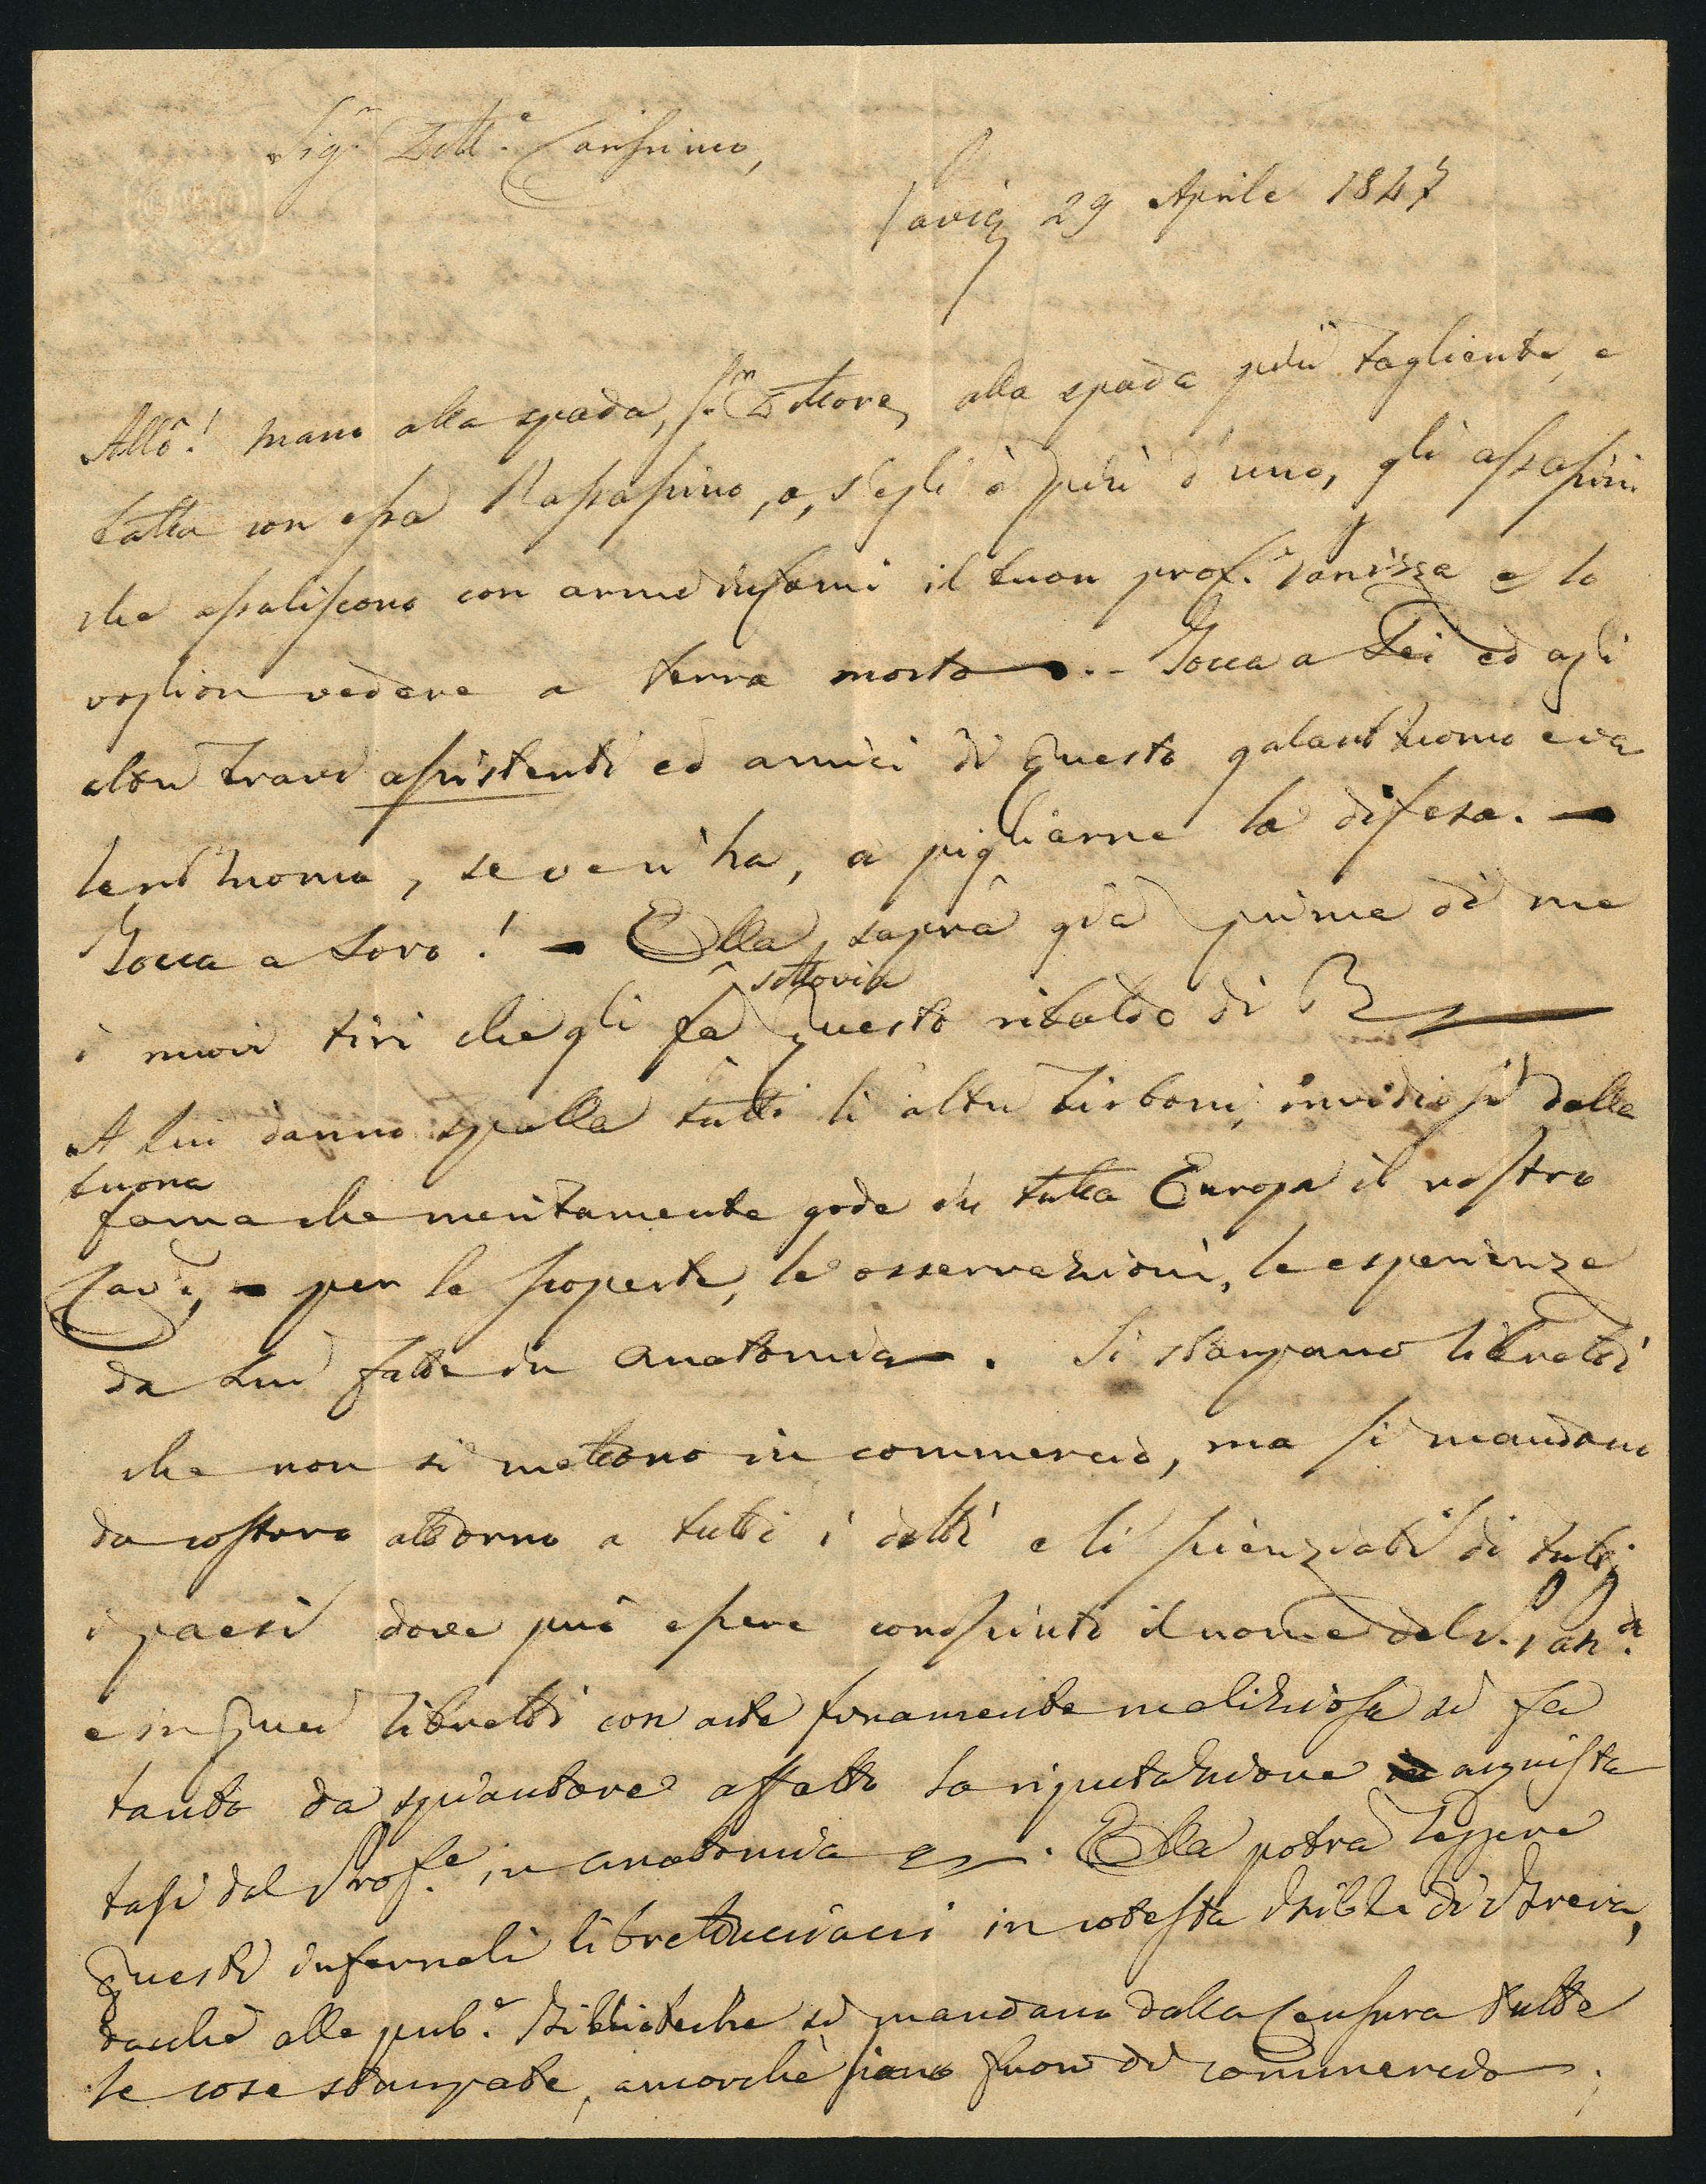 Sig.r Dott.e Carissimo,
Pavia 29 Aprile 1847
Allò! mano alla spada, S.r Dottore, alla spada più tagliente, e
batta con essa l'assassino, o, s'egli è più d'uno, gli assassini
che assaliscono con arme infami il buon prof. Panizza e lo
voglion vedere a terra morto. - Tocca a Lei ed agli
altri bravi assistenti ed amici di questo galantuomo e va
lentuomo, se ve n'ha, a pigliarne la difesa. -
Tocca a Loro! - Ella saprà già prima di me
i nuovi tiri che gli fa sottovia questo ribaldo di R
A lui danno spalla tutti li altri birboni, invidiosi della
buona
fama che meritamente gode in tutta Europa il nostro
Cav.e, - per le scoperte, le osservazioni, le esperienze
da Lui fatte in anatomia. Si stampano libretti
che non si mettono in commercio, ma si mandano
da costoro attorno a tutti i dotti e li scienziati di tutti
i paesi dove può essere conosciuto il nome del S. Pan.
e in quei libretti con arte finamente maliziosa si fa
tanto da spiantare affatto la riputazione acquista
tasi dal Prof.e in anatomia. Ella potrà leggere
questi infernali librettucciacci in cotesta Bibl. di Brera,
dacchè alle pub.e Biblioteche si mandano dalla Censura tutte
le cose stampate, ancorchè siano fuori di commercio;